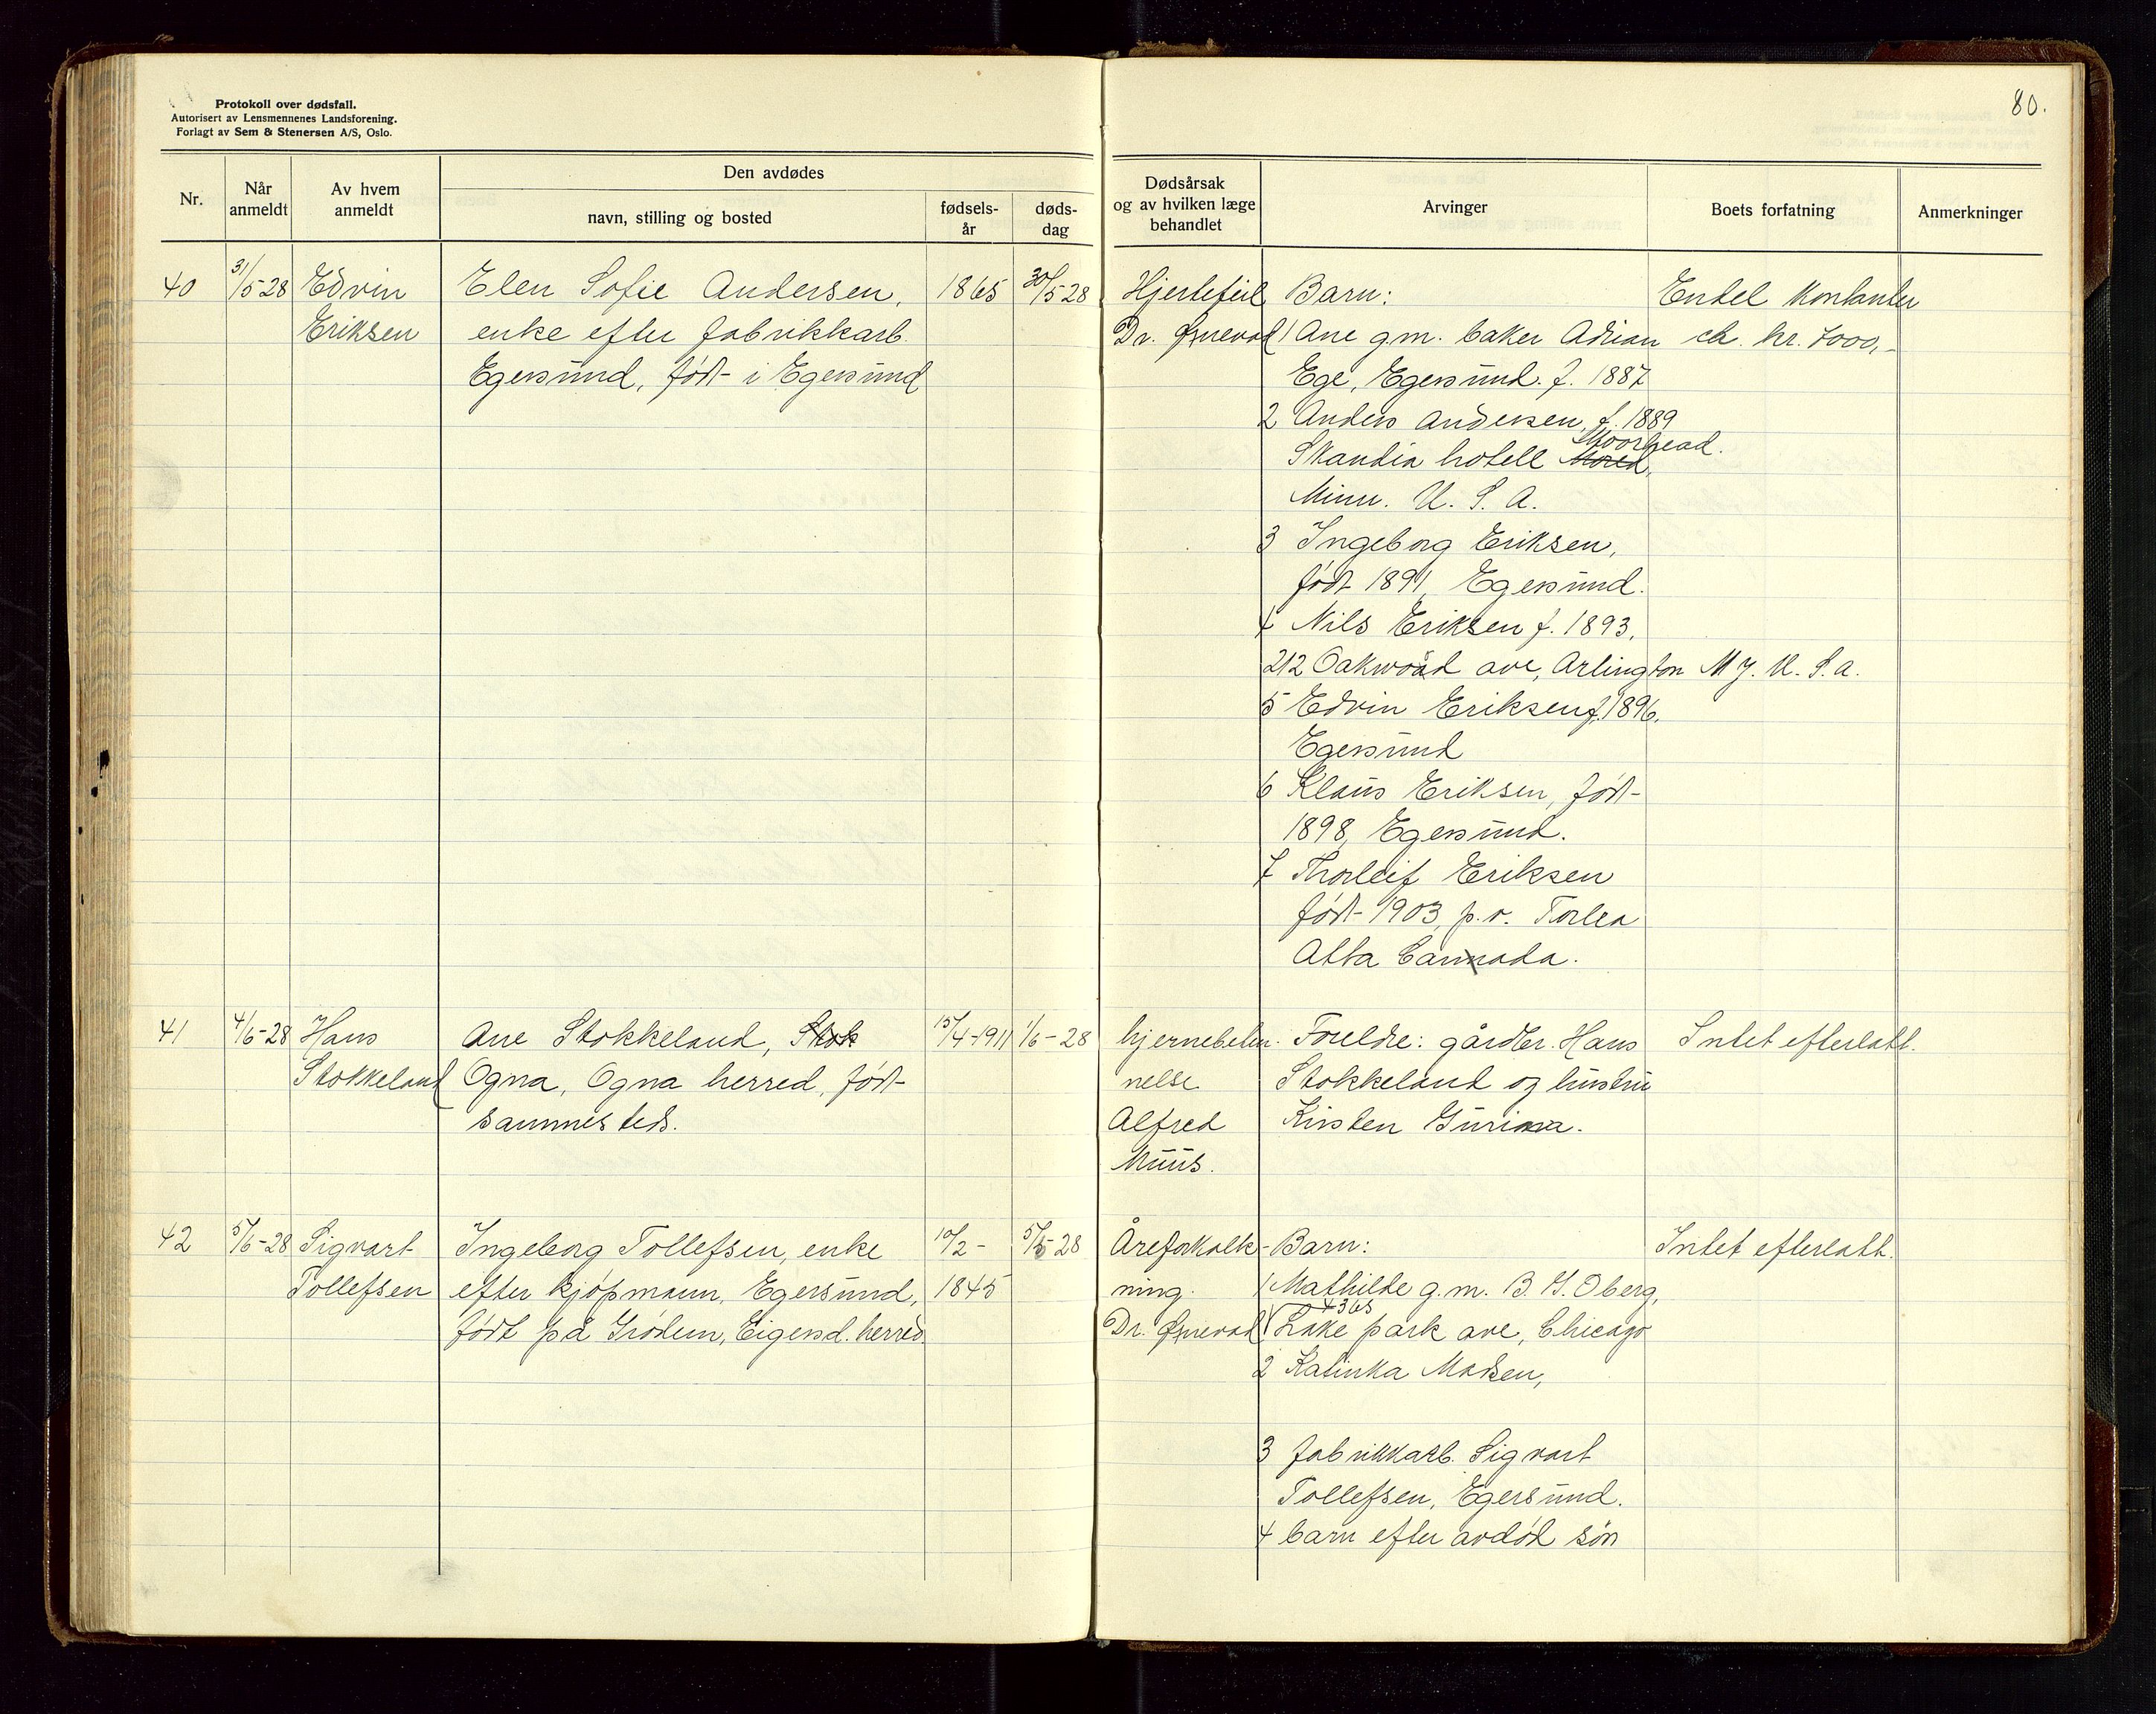 Protokoll over dødsfall.
Autorisert av Lensmennenes Landsforening.
Forlagt av Sem & Stenersen A/S, Oslo.
80.
Nr.
Når anmeldt
Av hvem anmeldt
Den avdødes
navn, stilling og bosted
fødselsår
dødsdag
Dødsårsak og av hvilken læge behandlet
Arvinger
Boets forfatning
Anmerkninger
40
31/5-28
Edvin
Eriksen
Elen Sofie Andersen,
enke efter fabrikkarb.
Egersund, født i Egersund
1865
30/5-28
Hjertefeil
Dr.
Barn:
1 Ane gm. baker Adrian
Ege, Egersund. f. 1887
2 Anders Andersen, f. 1889
Moorhead.
Skandia hotell Mored,
Minn. U. S. A.
3 Ingeborg Eriksen,
født 1891, Egersund.
4 Nils Eriksen f. 1893,
212 Oakwood ave, Arlington M J. U. S. A.
5 Edvin Eriksen f. 1896.
Egersund
6 Klaus Eriksen, født-
1898, Egersund.
7 Thorleif Eriksen
født- 1903, p.v. Torlea
Alta Cannada.
Endel kontanter
ca. kr. 7000,-
41
4/6-28
Hans
Stokkeland
Ane Stokkeland, Stok
Ogna, Ogna herred, født-
sammesteds.
15/4-1911
1/6-28
hjernebeten-
nelse
Alfred
Muus.
Foreldre: gårdbr. Hans
Stokkeland og hustru
Kirsten Gurina.
Intet efterlatt.
42
5/6-28
Sigvart
Tollefsen
Ingeborg Tollefsen, enke
efter kjøpmann, Egersund,
født på Grødem, Eigersd. herred
10/2-
1845
5/6-28
Åreforkalk-
ning.
Dr.
Barn:
1 Mathilde g.m. B. G. Oberg,
4365
Lake park ave, Chicago
2 Kalinka Madsen,
3 fabrikkarb. Sigvart
Tollefsen, Egersund.
4 barn efter avdød søn
Intet efterlatt.